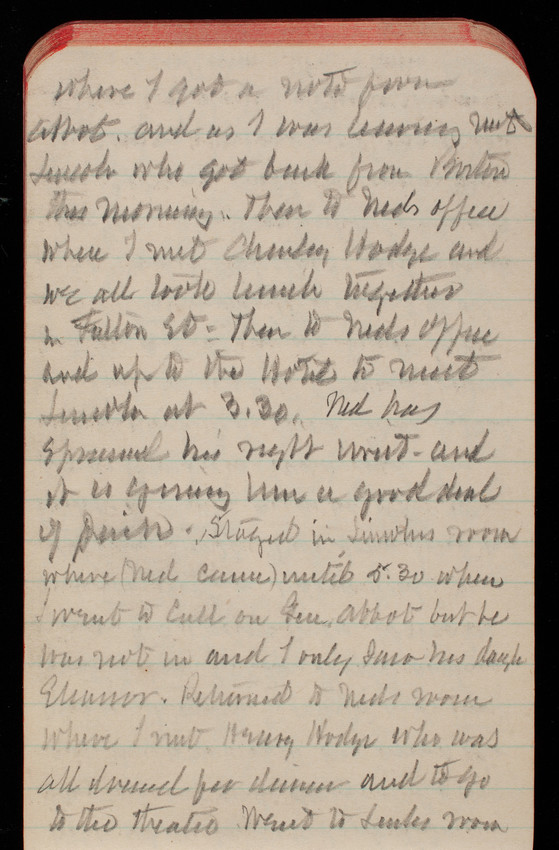 where I got a note from
Abbot. and as I was leaving met
Lincoln who got back from Boston
this morning. Then to Neds office
where I met Charley Hodge and
we all took lunch together
in Fulton St = Then to Neds office
and up to the Hotel to meet
Lincoln at 3.30. Ned has
sprained his right wrist - and
it is giving him a good deal
of pain. Stayed in Lincolns room
where (Ned came) until 5.30 when
I went to call on Gen. Abbot but he
was not in and I only saw his daugh
Eleanor. Returned to Neds room
where I met Henry Hodge who was
all dressed for dinner and to go
to the theatre Went to Lincs room